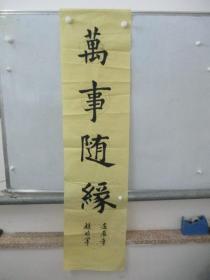 萬事随緣